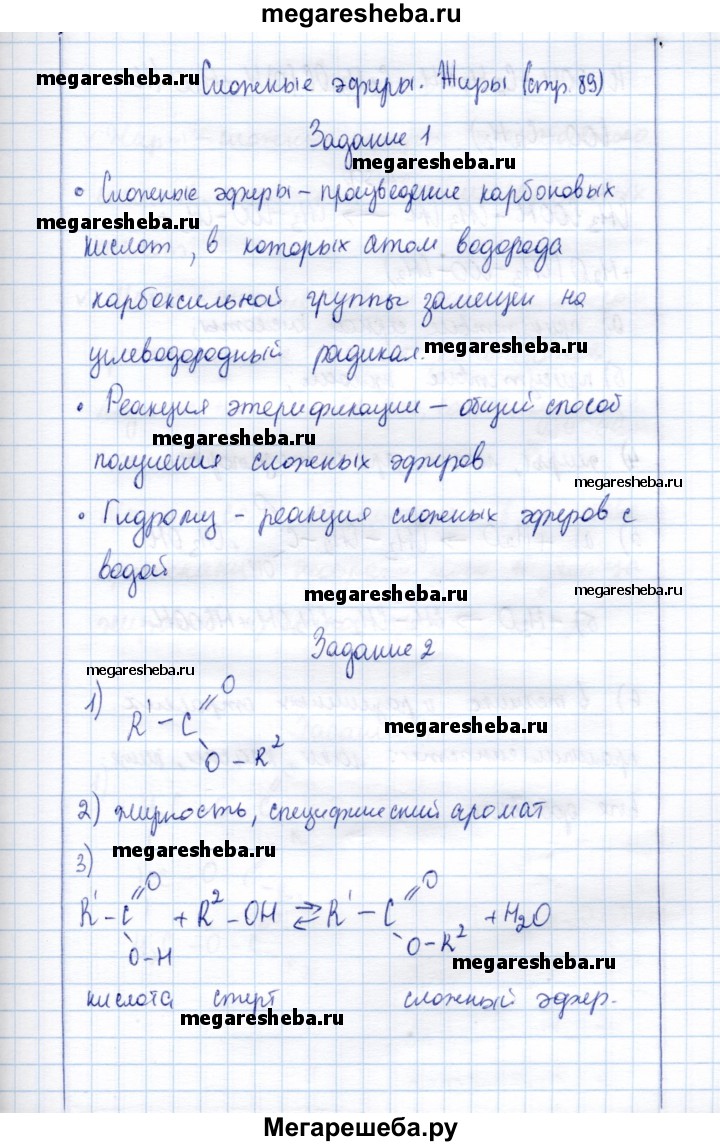 megaresheba.ru
megaresheba.ru
Сложные эфиры. Жиры (стр. 89)
Задание 1
megaresheba.ru
• Сложные эфиры – произведение карбоновых
megaresheba.ru
кислот, в которых атом водорода
карбоксильной группы замещен на
углеводородный радикал.
megaresheba.ru
• Реакция этерификации – общий способ
megaresheba.ru
получения сложных эфиров
megaresheba.ru
• Гидролиз – реакция сложных эфиров с
водой
megaresheba.ru
megaresheba.ru
Задание 2
megaresheba.ru
1) R¹ – C // O
O – R²
megaresheba.ru
2) жирность, специфический аромат
3)
megaresheba.ru
R¹ – C // O + R² – OH ⇄ R¹ – C // O + H₂O
O – H O – R²
megaresheba.ru
кислота спирт сложный эфир.
megaresheba.ru
Мегарешеба.ру